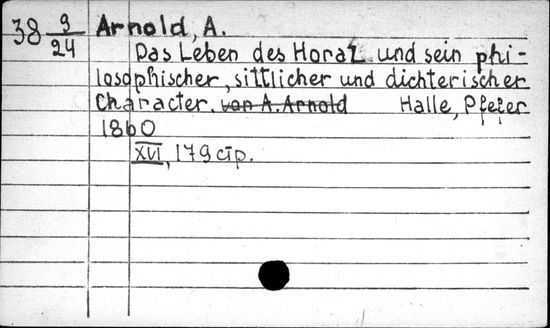 38 9/24 Arnold, A.
Das Leben des Horaz und sein phi-
losophischer, sittlicher und dichterischer
Character. von A. Arnold Halle, Pfefer
1860
XVI, 179 стр.